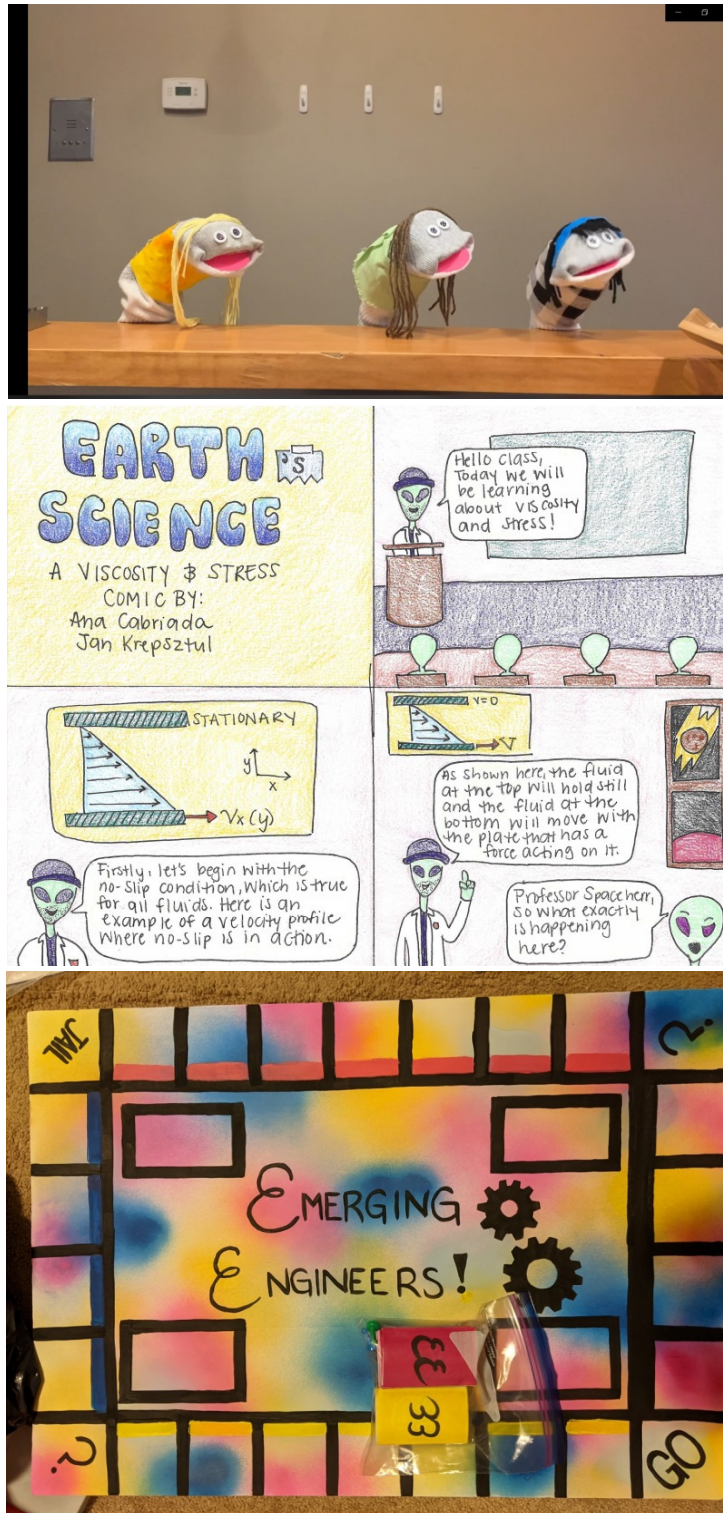 EARTH 'S
SCIENCE
A VISCOSITY & STRESS
COMIC BY:
Ana Cabriada
Jan Krepsztul
Hello class,
Today we will
be learning
about viscosity
and stress!
STATIONARY
y
x
Vx (y)
Firstly, let's begin with the
no-slip condition, which is true
for all fluids. Here is an
example of a velocity profile
where no-slip is in action.
V=0
V
As shown here, the fluid
at the top will hold still
and the fluid at the
bottom will move with
the plate that has a
force acting on it.
Professor Spaceherr,
so what exactly
is happening
here?
JAIL
?
EMERGING
ENGINEERS!
EE
EE
?
GO